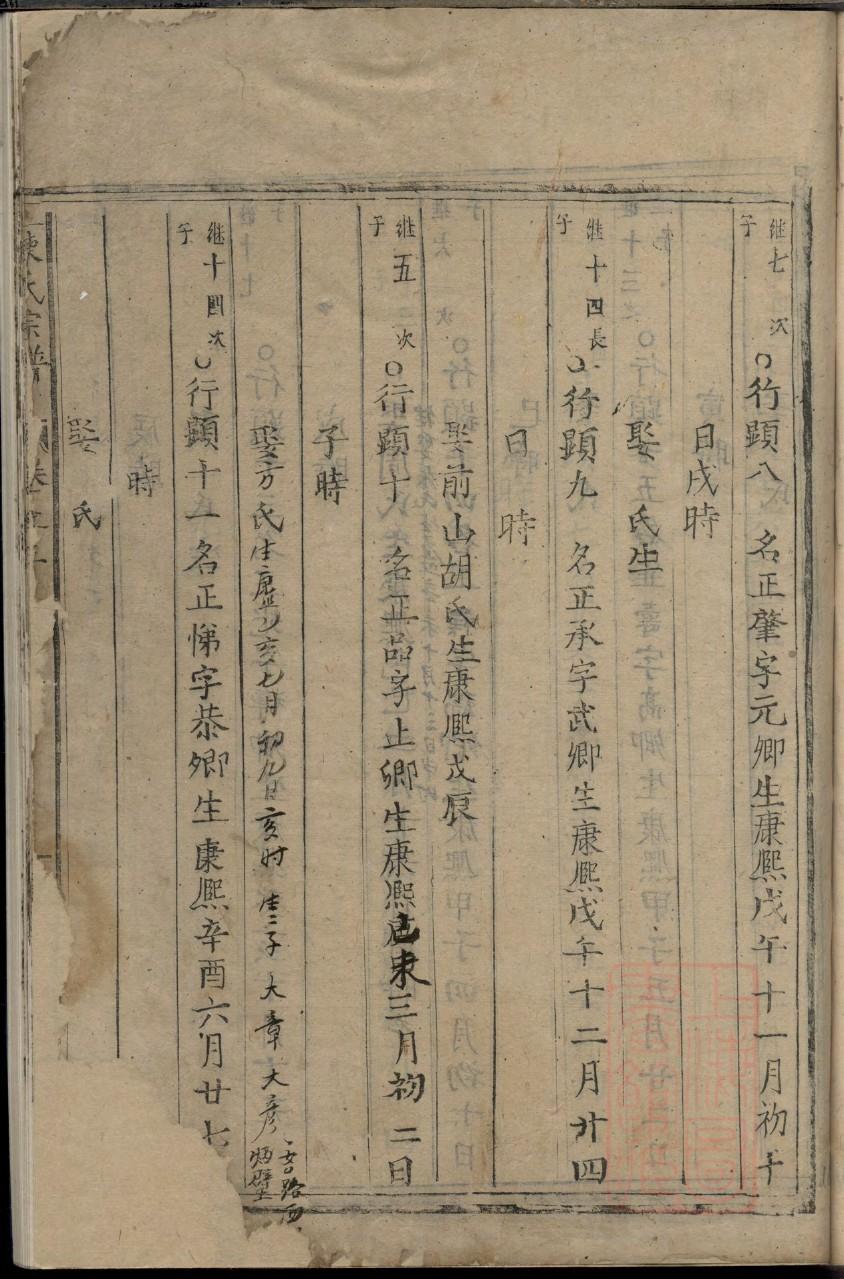 继七次子○行顕八名正肇字元卿生康熙戊午十一月初十
日戌時
娶 氏生
继十四長子○行顕九名正承字武卿生康熙戊午十二月廿四
日 時
娶前山胡氏生康熙戊辰
继五次子○行顕十名正品字止卿生康熙己未三月初二日
子時
娶方氏生康熙乙亥七月初九日亥时 生二子大章大彦
继十四次子○行顕十一名正悌字恭卿生康熙辛酉六月廿七
時
娶 氏
陳氏宗譜